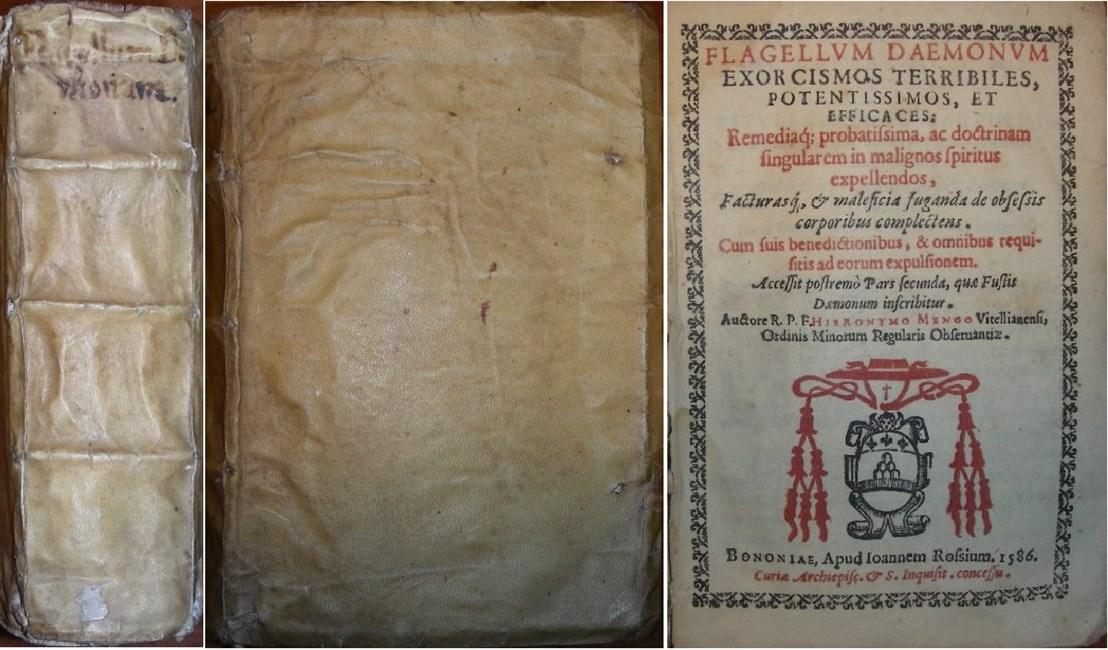 Flagellum D.
monum.
FLAGELLVM DAEMONVM
EXORCISMOS TERRIBILES,
POTENTISSIMOS, ET
EFFICACES:
Remediaq́; probatiſsima, ac doctrinam
ſingularem in malignos ſpiritus
expellendos,
Facturasq́, & maleficia fuganda de obſeſsis
corporibus complectens.
Cum ſuis benedictionibus, & omnibus requi-
ſitis ad eorum expulſionem.
Acceſſit poſtremò Pars ſecunda, quæ Fuſtis
Dæmonum inſcribitur.
Auctore R. P. F. HIERONYMO MENGO Vitellianenſi,
Ordinis Minorum Regularis Obſeruantiæ.
BONONIAE, Apud Ioannem Roſsium. 1586.
Curiæ Archiepiſc. & S. Inquiſit. conceſſu.